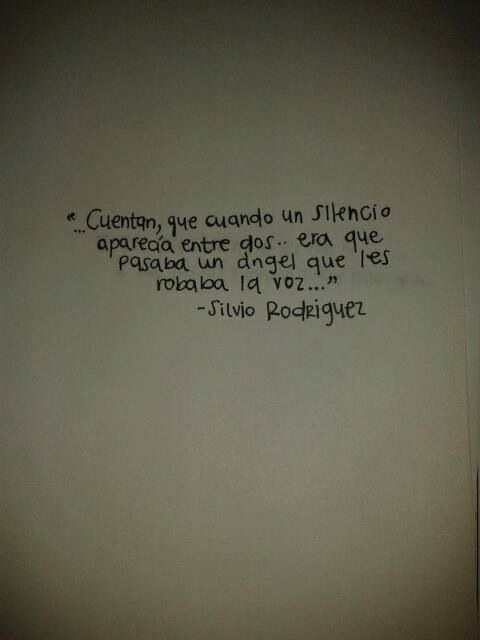 "...Cuentan, que cuando un silencio
aparecía entre dos.. era que
pasaba un ángel que les
robaba la voz..."
-Silvio Rodriguez